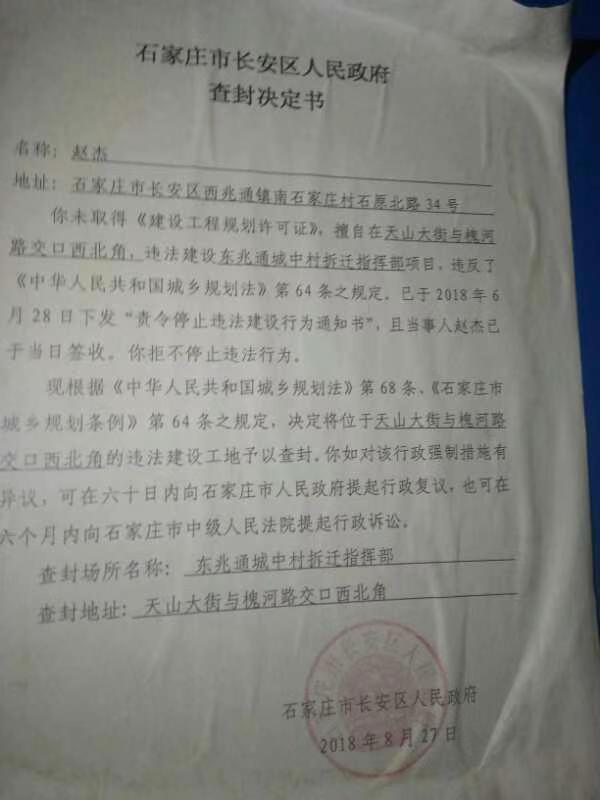 石家庄市长安区人民政府
查封决定书
名称：赵杰
地址：石家庄市长安区西兆通镇南石家庄村石原北路 34 号
你未取得《建设工程规划许可证》，擅自在天山大街与槐河
路交口西北角，违法建设东兆通城中村拆迁指挥部项目，违反了
《中华人民共和国城乡规划法》第 64 条之规定。已于 2018 年 6
月 28 日下发“责令停止违法建设行为通知书”，且当事人赵杰已
于当日签收。你拒不停止违法行为。
现根据《中华人民共和国城乡规划法》第 68 条、《石家庄市
城乡规划条例》第 64 条之规定，决定将位于天山大街与槐河路
交口西北角的违法建设工地予以查封。你如对该行政强制措施有
异议，可在六十日内向石家庄市人民政府提起行政复议，也可在
六个月内向石家庄市中级人民法院提起行政诉讼。
查封场所名称：东兆通城中村拆迁指挥部
查封地址：天山大街与槐河路交口西北角
石家庄市长安区人民政府
2018 年 8 月 27 日